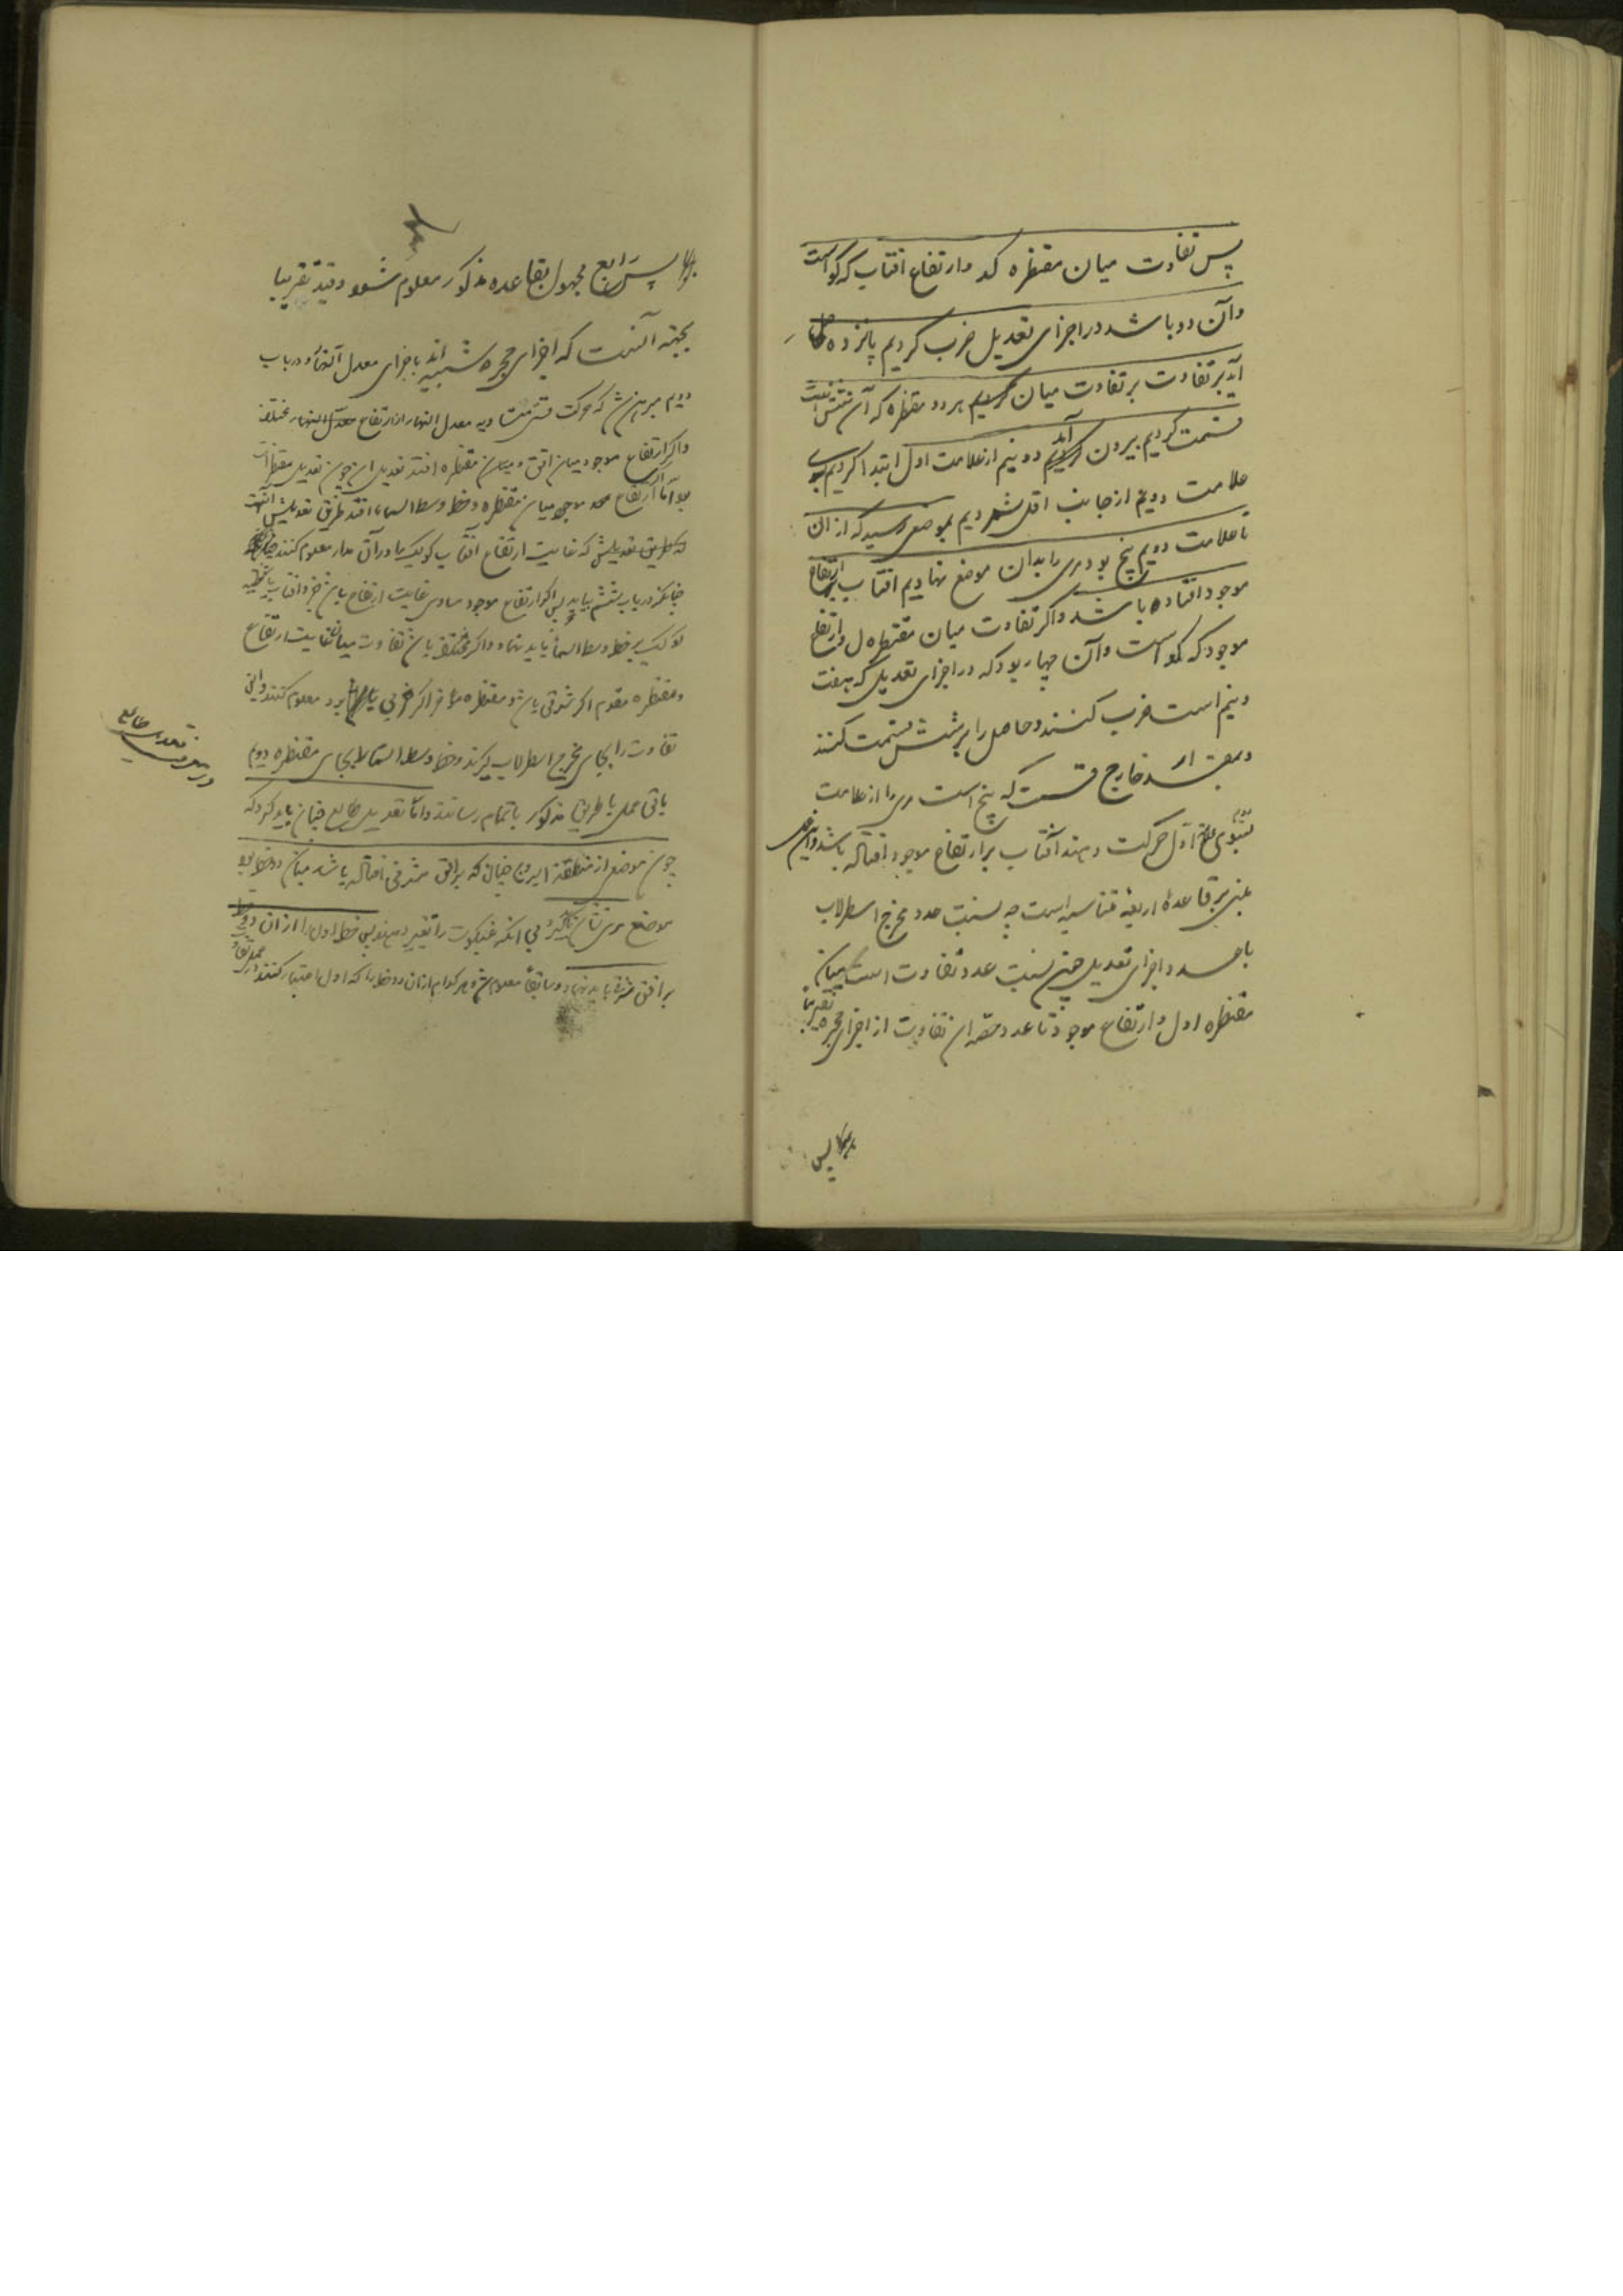 پس تفاوت میان مقنطره کد وارتفاع افتاب که کو است
وآن دو باشد در اجزای تعدیل ضرب کردیم پانزده حاصل
آید بر تفاوت میان هر دو مقنطره که آن شش است
قسمت کردیم بیرون آید دو نیم از علامت اول ابتدا کردیم بسوی
علامت دویم از جانب اقل شمردیم بموضعی رسید که از ان
تا علامت دویم پنج بود مری را بدان موضع نهادیم افتاب بر ارتفاع
موجود افتاده باشد واکر تفاوت میان مقنطره ل وارتفاع
موجود که کو است وآن چهار بود که در اجزای تعدیل که هفت
ونیم است ضرب کنند وحاصل را بر شش قسمت کنند
وبمقدار خارج قسمت که پنج است مری را از علامت
دویم بسوی علامت اول حرکت دهند آفتاب بر ارتفاع موجود افتاده باشد واین عمل
مبنی بر قاعدهٔ اربعهٔ متناسبه است چه نسبت عدد مخرج اسطرلاب
با عدد اجزای تعدیل چون نسبت عدد تفاوت است میان
مقنطره اول وارتفاع موجود تا عدد حصه ان تفاوت از اجزای حجره تقریبا
پس
پس رابع مجهول بقاعده مذکور معلوم شود وقید تقریبا
بجهة آنست که اجزای حجره شبیه اند باجزای معدل النهار ودر باب
دویم مبرهن شد که حرکت قسی متساویه معدل النهار از ارتفاع مختلف
واکر ارتفاع موجود میان افق ومیان مقنطره افتد تعدیل ان چون تعدیل مقنطرات
بود اما اکر ارتفاع موجود میان مقنطره وخط وسط السماء افتد طریق تعدیلش آنست
که غایت ارتفاع آفتاب یا کوکب در آن مدار معلوم کنند
چنانکه در باب ششم بیاید پس اکر ارتفاع موجود مساوی غایت ارتفاع باشد جزو افتاب یا شظیه
کوکب بر خط وسط السماء باید نهاد واکر مختلف باشد تفاوت میان غایت ارتفاع
ومقنطره مقدم اکر شرقی باشد ومقنطره مؤخر اکر غربی باشد معلوم کنند واین
تفاوت را بجای مخرج اسطرلاب گیرند وخط وسط السماء بجای مقنطره دویم
باقی عمل بطریق مذکور باتمام رسانند واما تعدیل طالع چنان باید کرد که
چون موضعی از منطقة البروج چنان که بر افق مشرق افتاده باشد میان دو خط بود
موضع مری نشان کنند بی انکه عنکبوت را تغییر دهند پس خط اول را از ان دو خط
بر افق شرقی باید نهاد
در معرفت تعدیل طالع